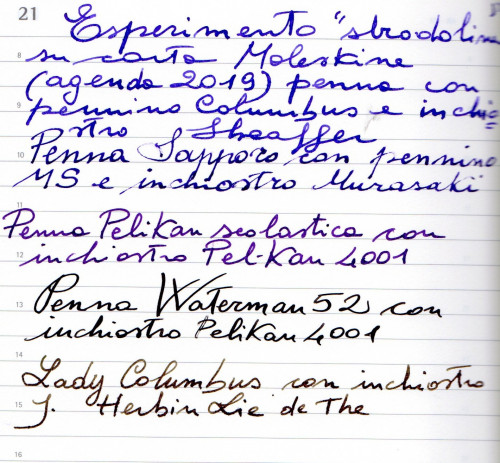 21
Esperimento "sbrodolina
8 su carta Moleskine
(agenda 2019) penna con
9 pennino Columbus e inchio=
stro Sheaffer
10 Penna Sapporo con pennino
MS e inchiostro Murasaki
11
Penna Pelikan scolastica con
12 inchiostro Pelikan 4001
13 Penna Waterman 52 con
inchiostro Pelikan 4001
14
Lady Columbus con inchiostro
15 J. Herbin Lie de The
16